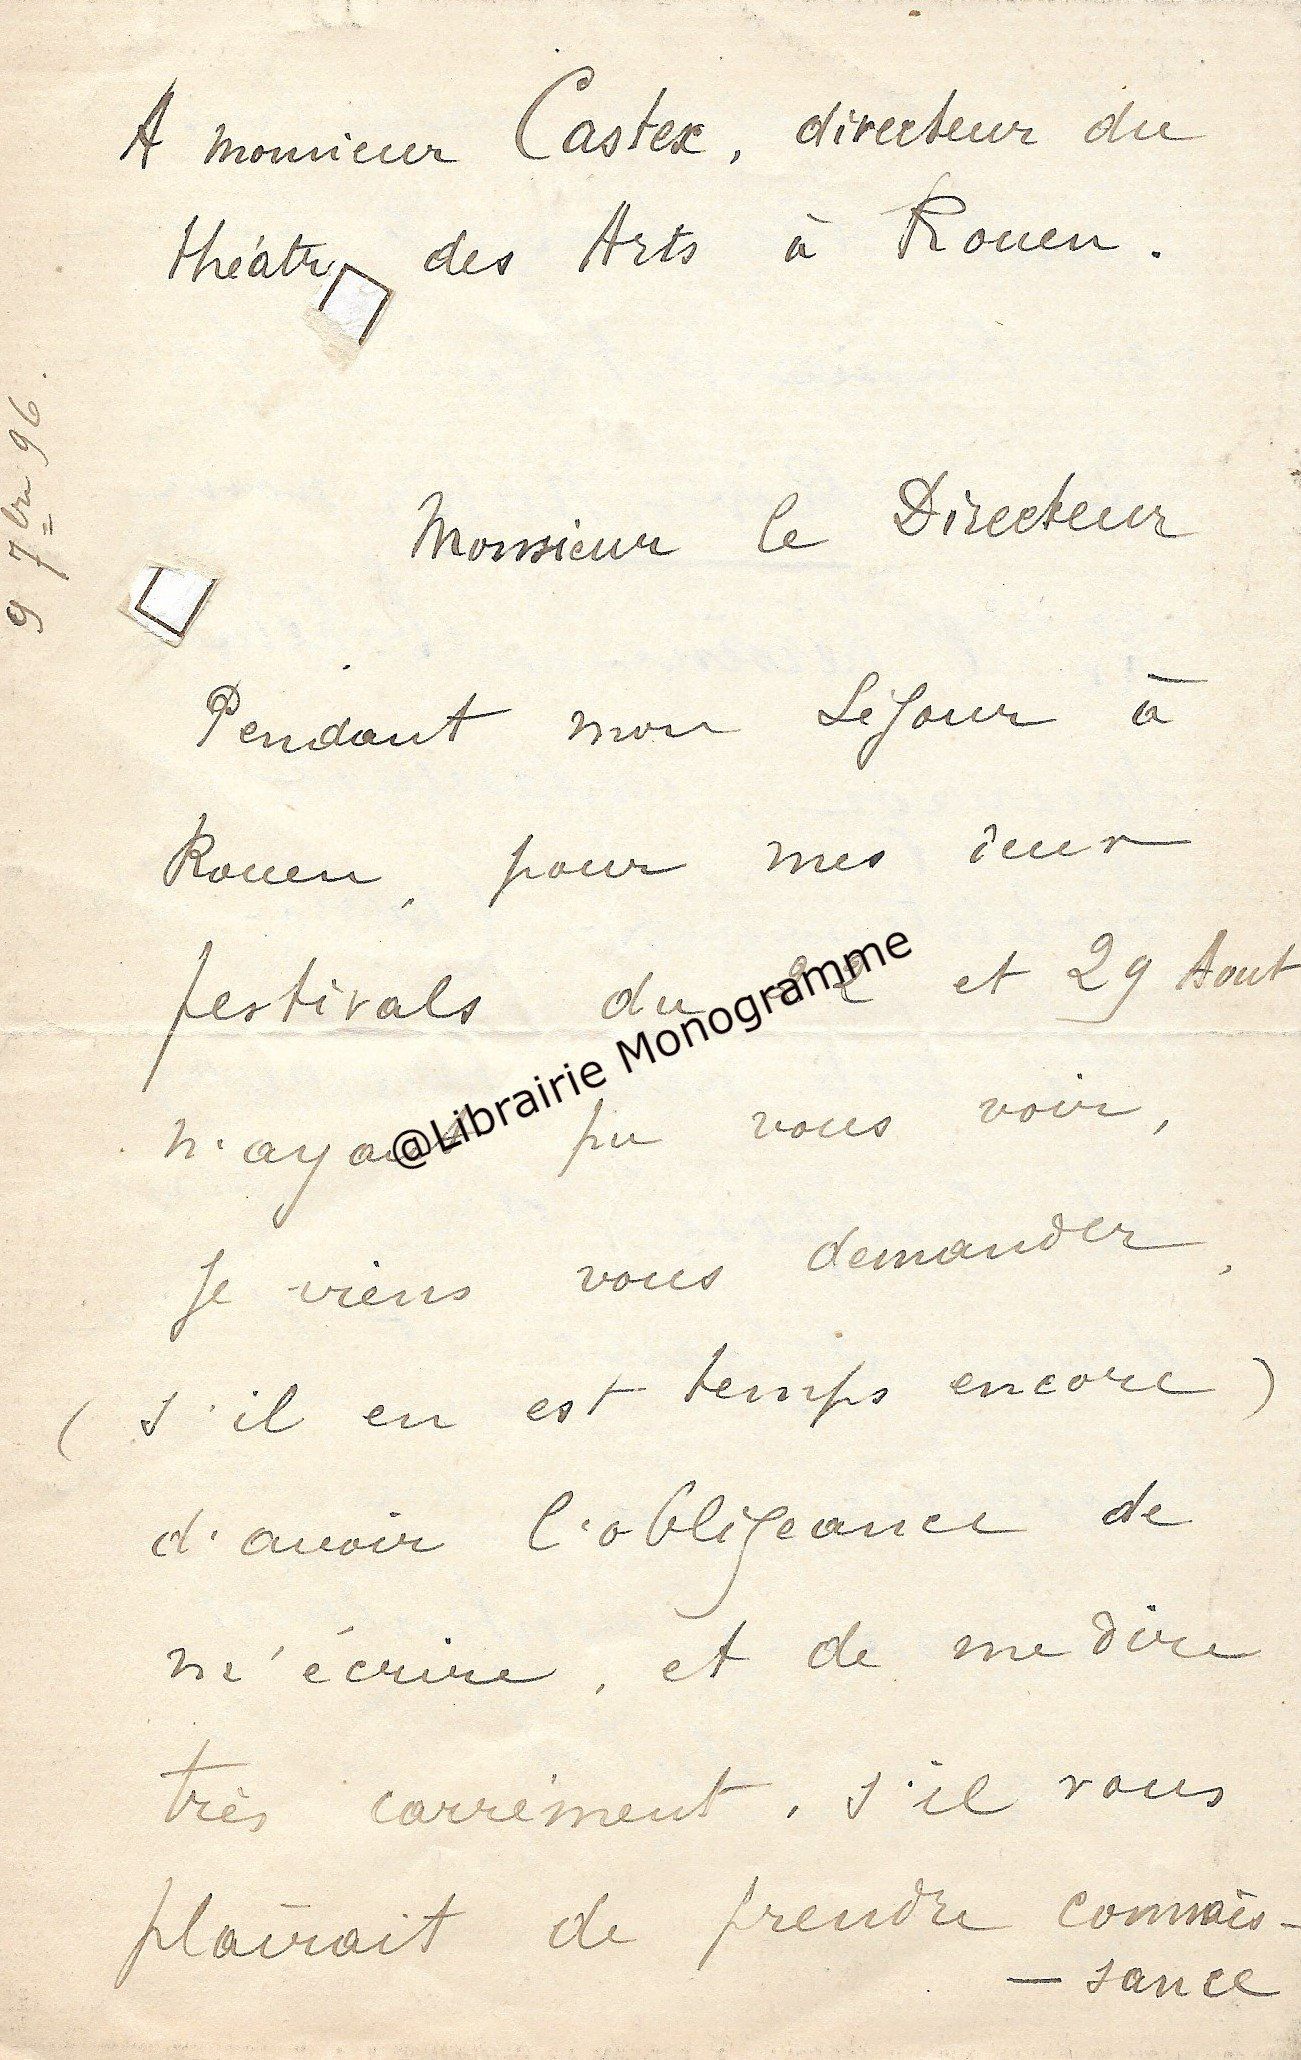 A monsieur Castex, directeur du
théâtre des Arts à Rouen.
9 7bre 96.
Monsieur le Directeur
Pendant mon séjour à
Rouen, pour mes deux
festivals du 22 et 29 Aout
n'ayant pu vous voir,
je viens vous demander,
(s'il en est temps encore)
d'avoir l'obligeance de
m'écrire, et de me dire
très carrément, s'il vous
plairait de prendre connais-
-sance
@Librairie Monogramme